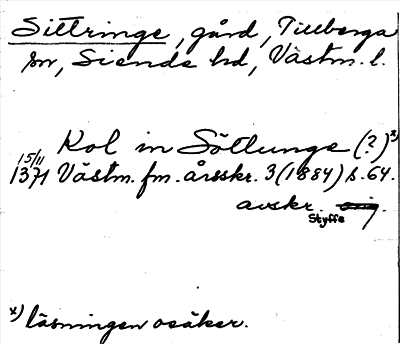 Sittringe, gård, Tillberga
sn, Siende hd, Västm. l.
Kol in Söllunge (?) x)
15/11
1371 Västm. fm. årsskr. 3 (1884) s. 64.
avskr. orig.
Styffe
x) läsningen osäker.